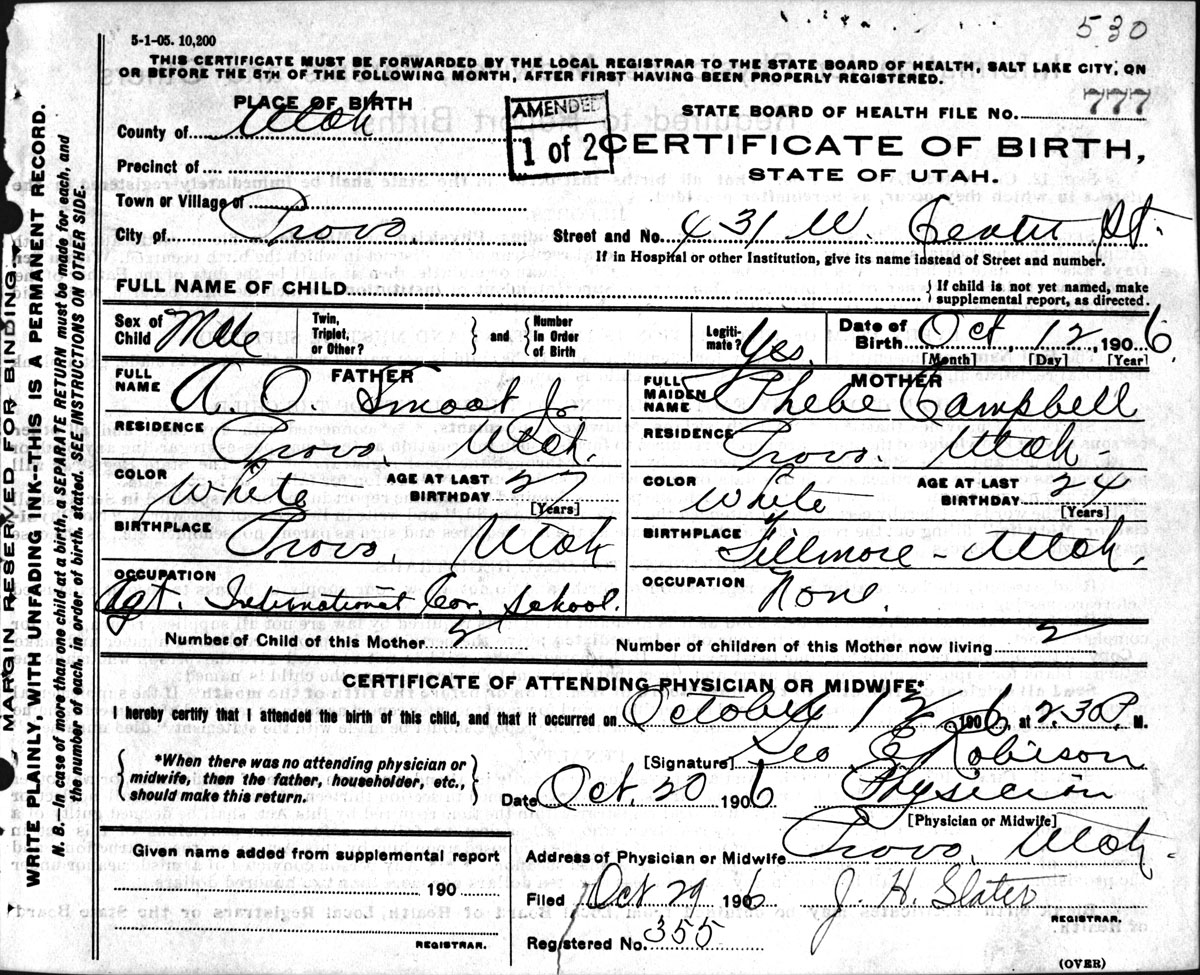 530
5-1-05. 10,200
THIS CERTIFICATE MUST BE FORWARDED BY THE LOCAL REGISTRAR TO THE STATE BOARD OF HEALTH, SALT LAKE CITY, ON
OR BEFORE THE 5TH OF THE FOLLOWING MONTH, AFTER FIRST HAVING BEEN PROPERLY REGISTERED.
PLACE OF BIRTH
AMENDED
1 of 2
STATE BOARD OF HEALTH FILE No. 777
County of Utah
CERTIFICATE OF BIRTH,
STATE OF UTAH.
Precinct of
Town or Village of
City of Provo. Street and No. 431 W. Center St.
If in Hospital or other Institution, give its name instead of Street and number.
FULL NAME OF CHILD
If child is not yet named, make
supplemental report, as directed.
Sex of Child Male Twin, Triplet, or Other? and Number in Order of Birth Legitimate? Yes. Date of Birth Oct. 12 1906.
[Month] [Day] [Year]
FATHER
FULL NAME A. O. Smoot Jr
RESIDENCE Provo. Utah.
COLOR White AGE AT LAST BIRTHDAY 27
[Years]
BIRTHPLACE Provo, Utah
OCCUPATION Agt. International Cor. School.
MOTHER
FULL MAIDEN NAME Phebe Campbell
RESIDENCE Provo. Utah.
COLOR White AGE AT LAST BIRTHDAY 24
[Years]
BIRTHPLACE Fillmore Utah.
OCCUPATION None.
Number of Child of this Mother 2 Number of children of this Mother now living 2
CERTIFICATE OF ATTENDING PHYSICIAN OR MIDWIFE*
I hereby certify that I attended the birth of this child, and that it occurred on October 12 1906, at 2.30 P. M.
*When there was no attending physician or
midwife, then the father, householder, etc.,
should make this return.
[Signature] Geo E Robison
Date Oct. 20 1906 Physician
[Physician or Midwife]
Address of Physician or Midwife Provo, Utah.
Given name added from supplemental report
190
REGISTRAR.
Filed Oct 29 1906 J. H. Slater
REGISTRAR.
Registered No. 355
(OVER)
MARGIN RESERVED FOR BINDING.
WRITE PLAINLY, WITH UNFADING INK--THIS IS A PERMANENT RECORD.
N. B. In case of more than one child at a birth, a SEPARATE RETURN must be made for each, and
the number of each, in order of birth, stated. SEE INSTRUCTIONS ON OTHER SIDE.